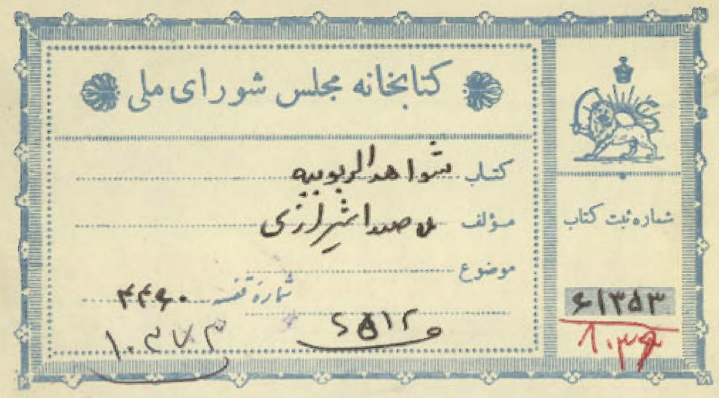 کتابخانه مجلس شورای ملی
کتاب شواهد الربوبیه
مؤلف ملا صدرا شیرازی
موضوع
شماره قفسه ۴۴۶۰
۱۰۳۷۳
شماره ثبت کتاب
۶۱۳۵۳